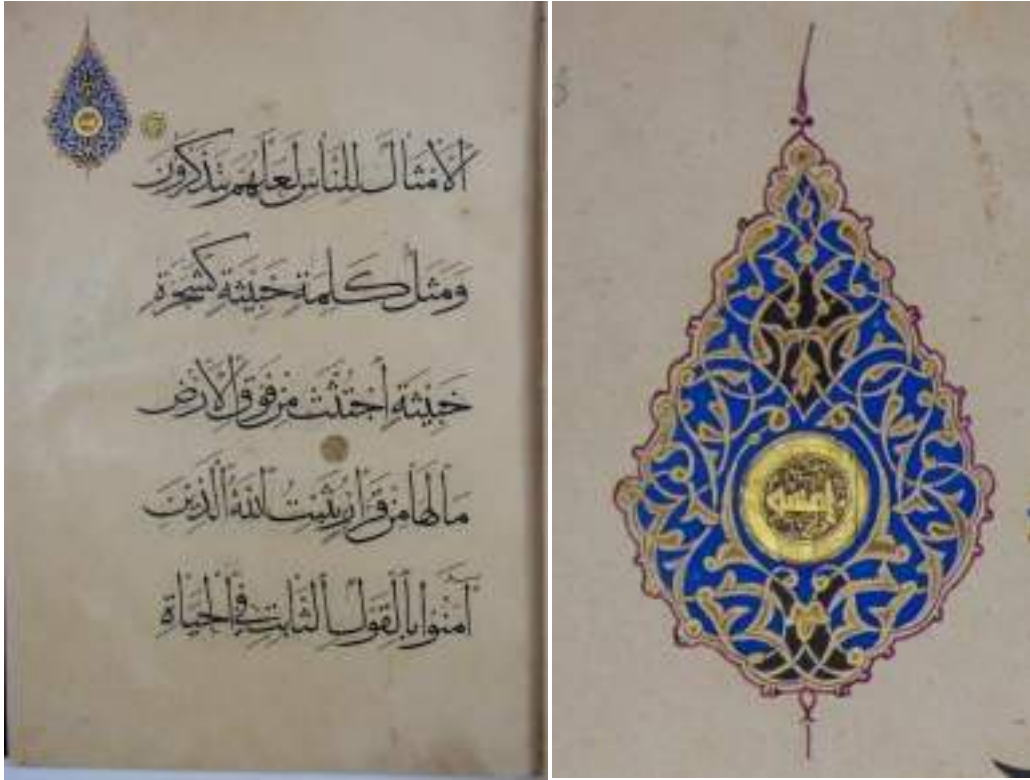 ٱلْأَمْثَالَ لِلنَّاسِ لَعَلَّهُمْ يَتَذَكَّرُونَ
وَمَثَلُ كَلِمَةٍ خَبِيثَةٍ كَشَجَرَةٍ
خَبِيثَةٍ ٱجْتُثَّتْ مِنْ فَوْقِ ٱلْأَرْضِ
مَا لَهَا مِنْ قَرَارٍ يُثَبِّتُ ٱللَّهُ ٱلَّذِينَ
آمَنُوا بِٱلْقَوْلِ ٱلثَّابِتِ فِي ٱلْحَيَاةِ